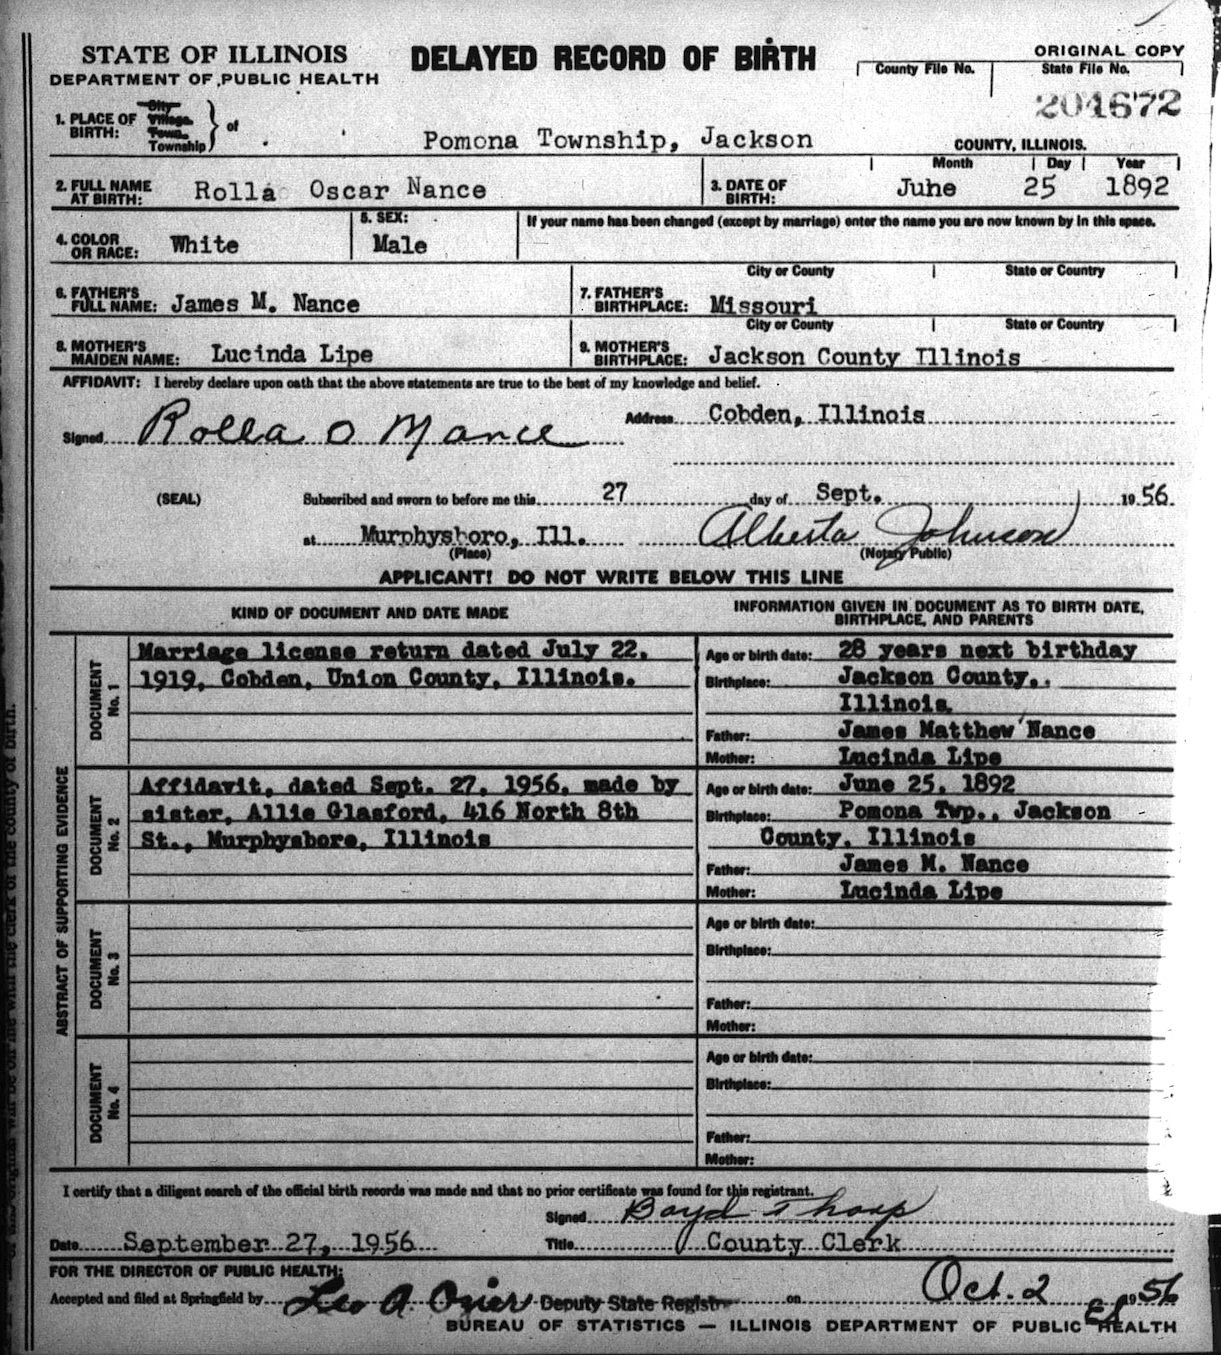 STATE OF ILLINOIS
DEPARTMENT OF PUBLIC HEALTH
DELAYED RECORD OF BIRTH
ORIGINAL COPY
County File No.
State File No.
204672
1. PLACE OF BIRTH: City Village Town Township } of Pomona Township, Jackson COUNTY, ILLINOIS.
2. FULL NAME AT BIRTH: Rolla Oscar Nance
3. DATE OF BIRTH: Month Day Year
June 25 1892
4. COLOR OR RACE: White
5. SEX: Male
If your name has been changed (except by marriage) enter the name you are now known by in this space.
6. FATHER'S FULL NAME: James M. Nance
7. FATHER'S BIRTHPLACE: City or County State or Country
Missouri
8. MOTHER'S MAIDEN NAME: Lucinda Lipe
9. MOTHER'S BIRTHPLACE: City or County State or Country
Jackson County Illinois
AFFIDAVIT: I hereby declare upon oath that the above statements are true to the best of my knowledge and belief.
Signed Rolla O Nance
Address Cobden, Illinois
(SEAL)
Subscribed and sworn to before me this 27 day of Sept. 1956
at Murphysboro, Ill. Alberta Johnson
(Place) (Notary Public)
APPLICANT! DO NOT WRITE BELOW THIS LINE
KIND OF DOCUMENT AND DATE MADE
INFORMATION GIVEN IN DOCUMENT AS TO BIRTH DATE,
BIRTHPLACE, AND PARENTS
ABSTRACT OF SUPPORTING EVIDENCE
DOCUMENT No. 1
Marriage license return dated July 22,
1919, Cobden, Union County, Illinois.
Age or birth date: 28 years next birthday
Birthplace: Jackson County,.
Illinois.
Father: James Matthew Nance
Mother: Lucinda Lipe
DOCUMENT No. 2
Affidavit, dated Sept. 27, 1956, made by
sister, Allie Glasford, 416 North 8th
St., Murphysboro, Illinois
Age or birth date: June 25, 1892
Birthplace: Pomona Twp., Jackson
County, Illinois
Father: James M. Nance
Mother: Lucinda Lipe
DOCUMENT No. 3
Age or birth date:
Birthplace:
Father:
Mother:
DOCUMENT No. 4
Age or birth date:
Birthplace:
Father:
Mother:
I certify that a diligent search of the official birth records was made and that no prior certificate was found for this registrant.
Signed Boyd Tharp
Date September 27, 1956
Title County Clerk
FOR THE DIRECTOR OF PUBLIC HEALTH:
Accepted and filed at Springfield by Leo A. Ozier Deputy State Registr on Oct. 2 1956
BUREAU OF STATISTICS — ILLINOIS DEPARTMENT OF PUBLIC HEALTH
with the clerk of the county of birth.